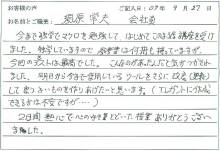 お客様の声 ご記入日：09年9月27日
お名前とご職業： 原 常夫 会社員
今まで独学でマクロを勉強して、はじめてこのような講座を受け
ました。独学していますので 参考書は何冊も持っていますが、
今回の教本は最高でした。こんなのがあったんだと気がつかされ
ました。明日から今まで使用しているツールをさらに改定(更新)
して使いよいものを作りあげたいと思います。(エレガントにかんせい
できるかは不安ですが…)
2日間 熱心で心のゆきとどいた 授業 ありがとうござい
ました。